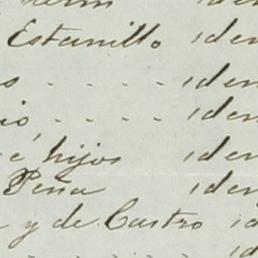 Estanillo iden
s - - - - iden
io, - - - - iden
é hijos iden
Peña iden
y de Castro id